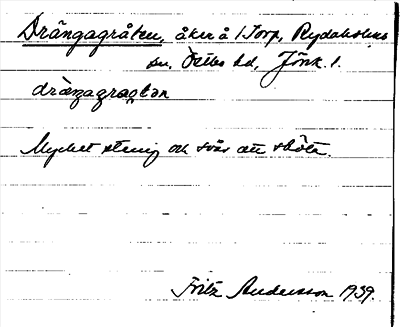 Drängagråten, åker å 1 Torp, Rydaholms
sn, Östbo hd, Jönk. l.
drängagragtən
Mycket stenig och svår att sköta.
Fritz Andersson 1939.